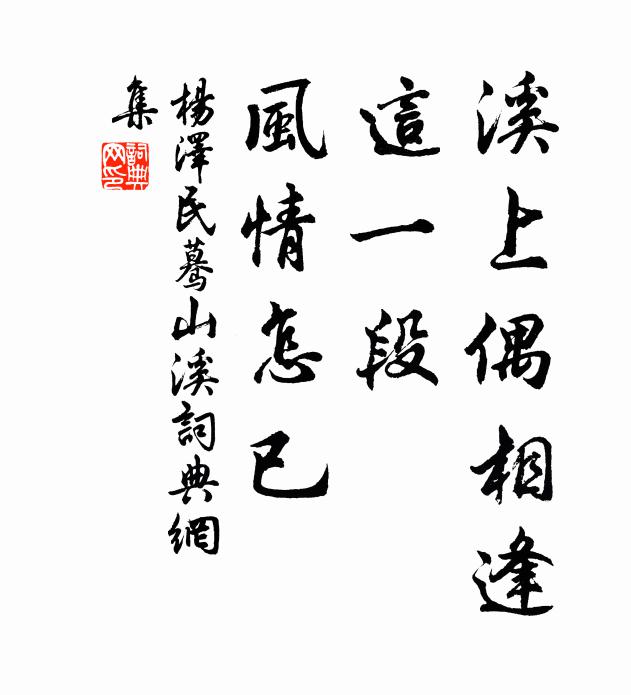 溪上偶相逢
這一段
風情怎已
楊澤民驀山溪詞典網
集
詞典
网印